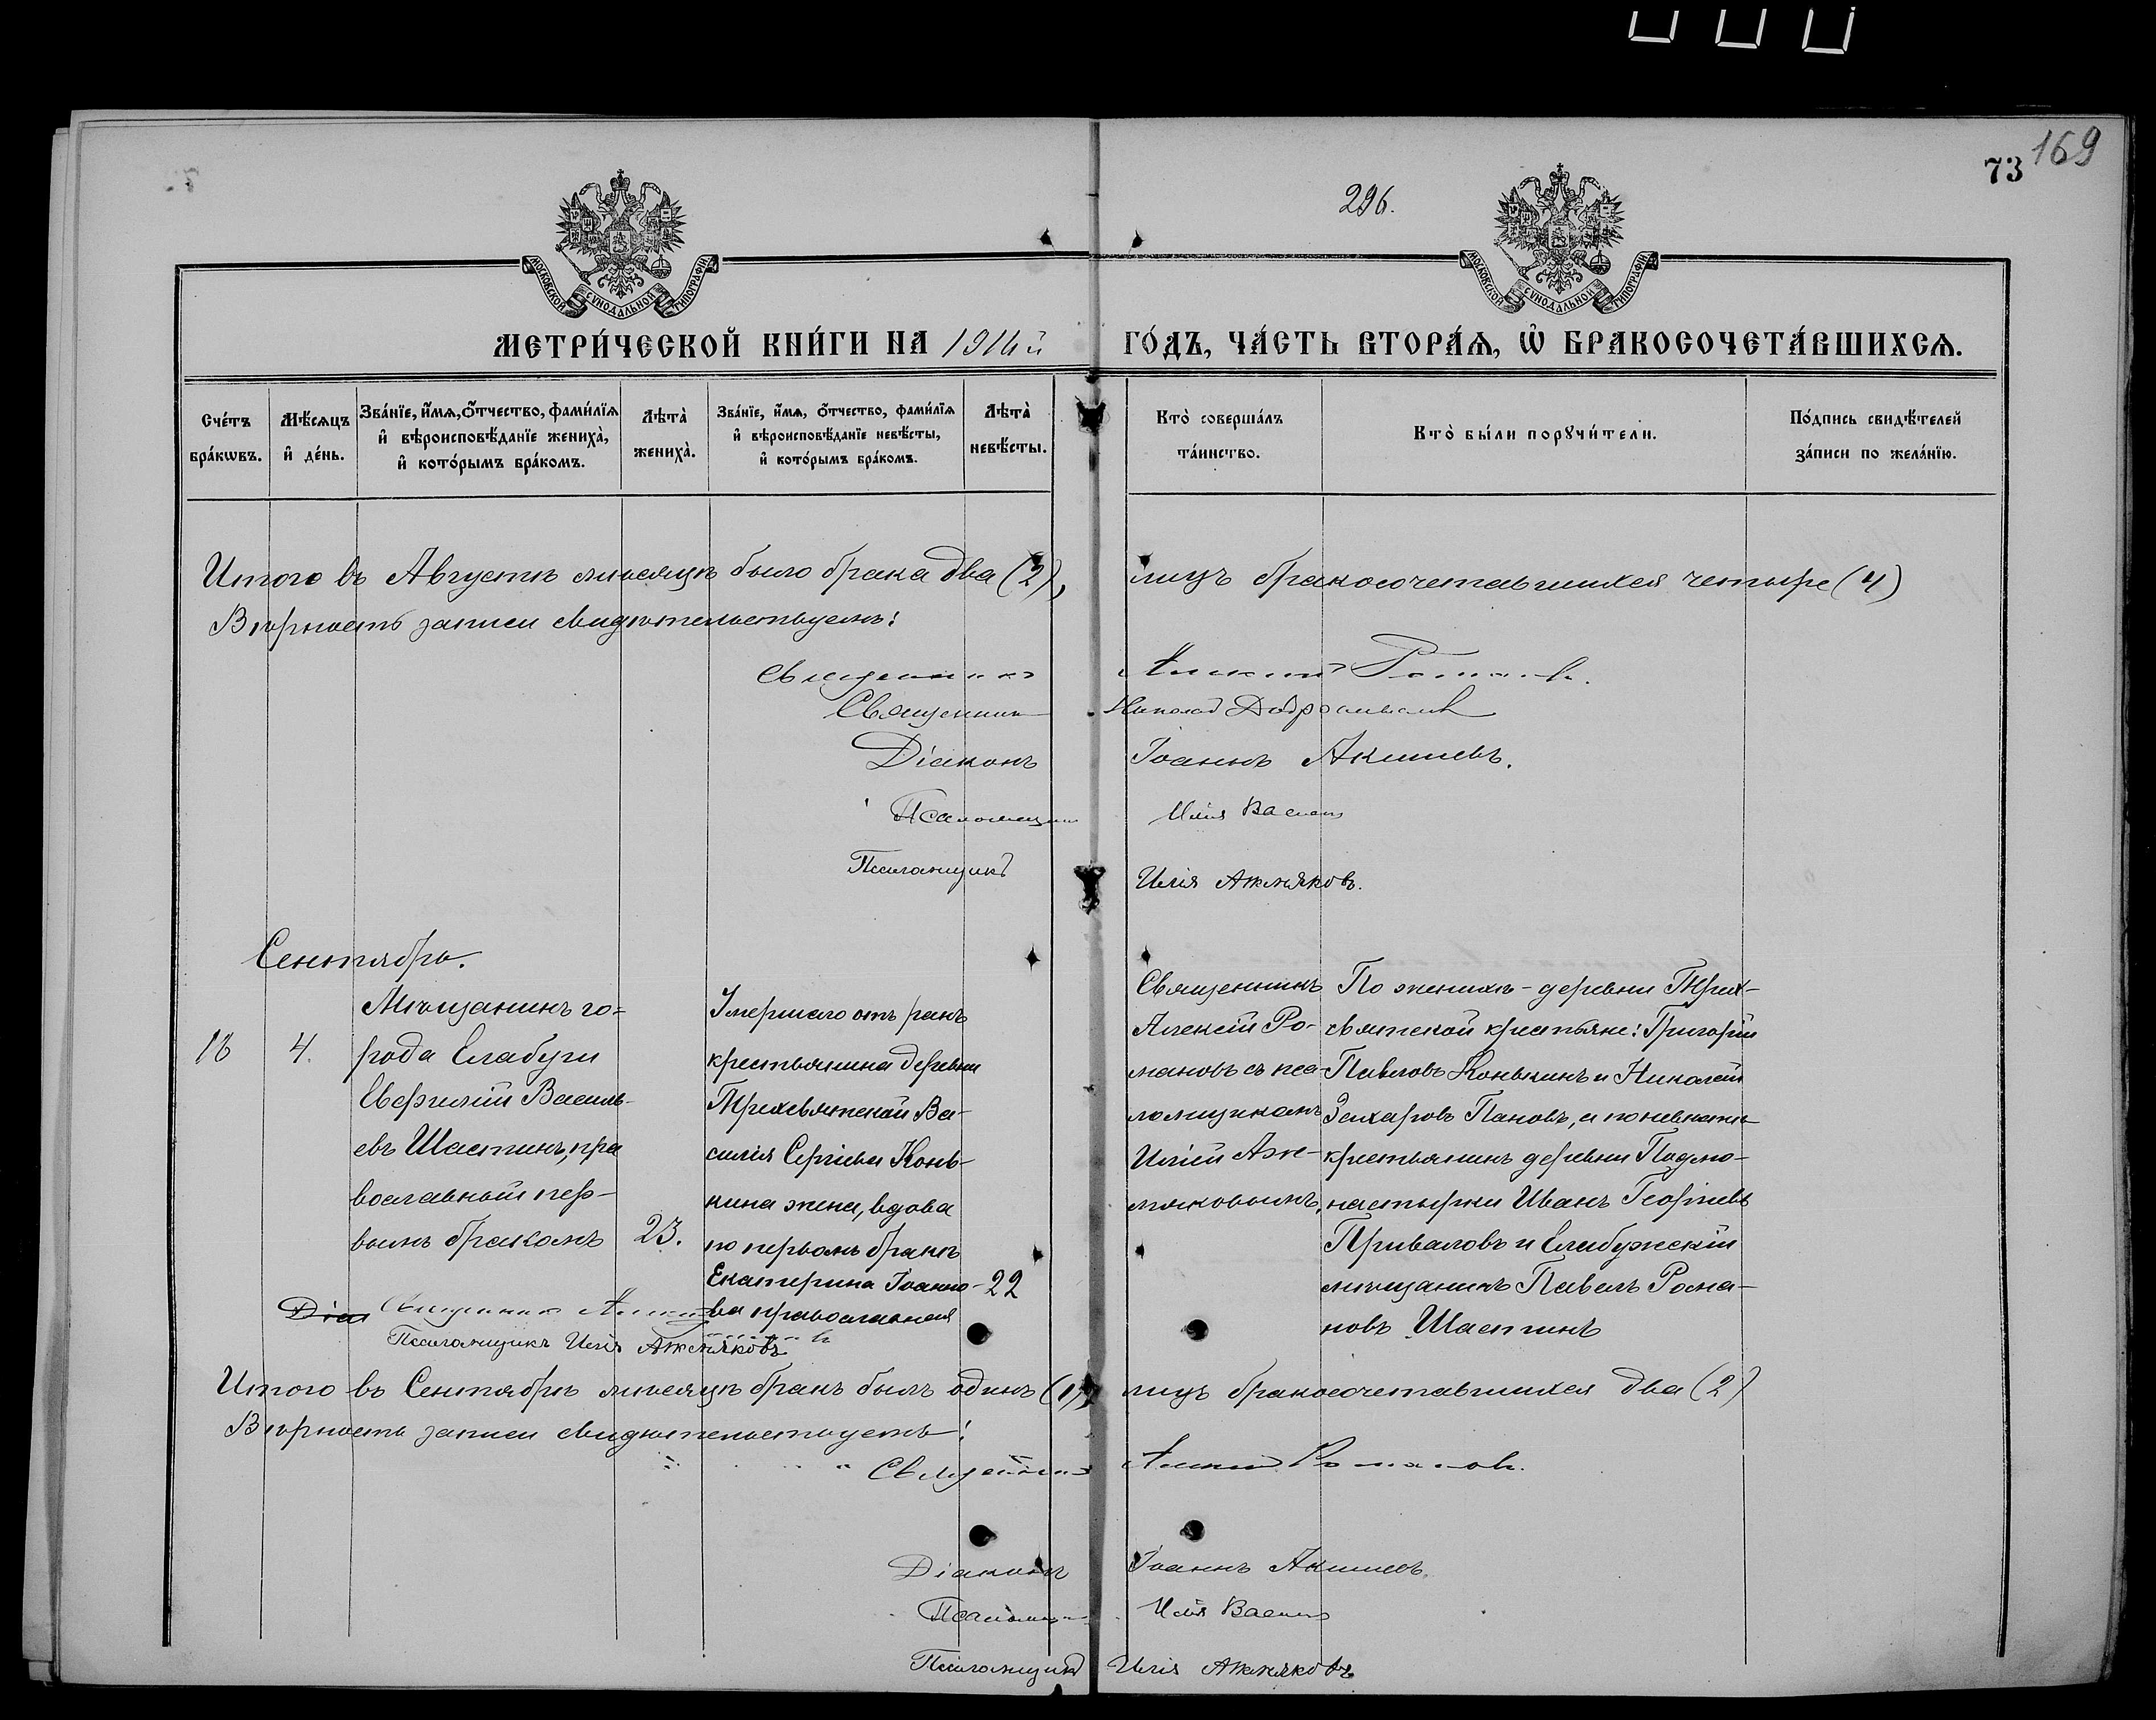 169
73
296.
МОСКОВСКОЙ СУНОДАЛЬНОЙ ТИПОГРАФІИ
МОСКОВСКОЙ СУНОДАЛЬНОЙ ТИПОГРАФІИ
МЕТРИ́ЧЕСКОЙ КНИ́ГИ НА 1914й ГО́ДЪ, ЧА́СТЬ ВТОРА́Ѧ, Ѡ҆ БРАКОСОЧЕТА́ВШИХСѦ.
Сче́тъ
бра́кѡвъ.
Мѣ́сѧцъ
и҆ де́нь.
Зва́нїе, и҆́мѧ, ѻ҆́тчество, фами́лїѧ
и҆ вѣроисповѣ́данїе жениха̀,
и҆ кото́рымъ бра́комъ.
Лѣта̀
жениха̀.
Зва́нїе, и҆́мѧ, ѻ҆́тчество, фами́лїѧ
и҆ вѣроисповѣ́данїе невѣ́сты,
и҆ кото́рымъ бра́комъ.
Лѣта̀
невѣ́сты.
Кто̀ соверша́лъ
та́инство.
Кто̀ бы́ли порꙋчи́тели.
По́дпись свидѣ́телей
за́писи по жела́нїю.
Итого въ Августѣ мѣсяцѣ было брака два (2), лицъ бракосочетавшихся четыре (4)
Вѣрность записи свидѣтельствуемъ:
Священникъ Алексій Романовъ.
Священникъ Николай
Діаконъ Іоаннъ Акишевъ.
Псаломщикъ Илія
Псаломщикъ Илія Ажмяковъ.
Сентябрь.
18
4.
Мѣщанинъ го-
рода Елабуги
Евфимій Василь-
евъ Шастинъ, пра
вославный пер-
вымъ бракомъ
23.
Умершаго отъ ранъ
крестьянина деревни
Трехсвятской Ва-
силія Сергіева Конь-
кина жена, вдова
по первомъ бракѣ
Екатерина Іоанно-
ва православная
22
Священникъ
Алексій Ро-
мановъ съ пса-
ломщикомъ
Иліей Аж-
мяковымъ.
По женихѣ - деревни Трех-
святской крестьяне: Григорій
Павловъ Конькинъ и Николай
Захаровъ Пановъ, а по невѣстѣ
крестьянинъ деревни Подмо-
настырки Иванъ Георгіевъ
Приваловъ и Елабужскій
мѣщанинъ Павелъ Рома-
новъ Шастинъ
Діак Священникъ Алексій
Псаломщикъ Илія Ажмяковъ
Итого въ Сентябрѣ мѣсяцѣ бракъ былъ одинъ (1), лицъ бракосочетавшихся два (2)
Вѣрность записи свидѣтельствуемъ:
Священникъ Алексій Романовъ.
Діаконъ Іоаннъ Акишевъ.
Псаломщикъ Илія
Псаломщикъ Илія Ажмяковъ